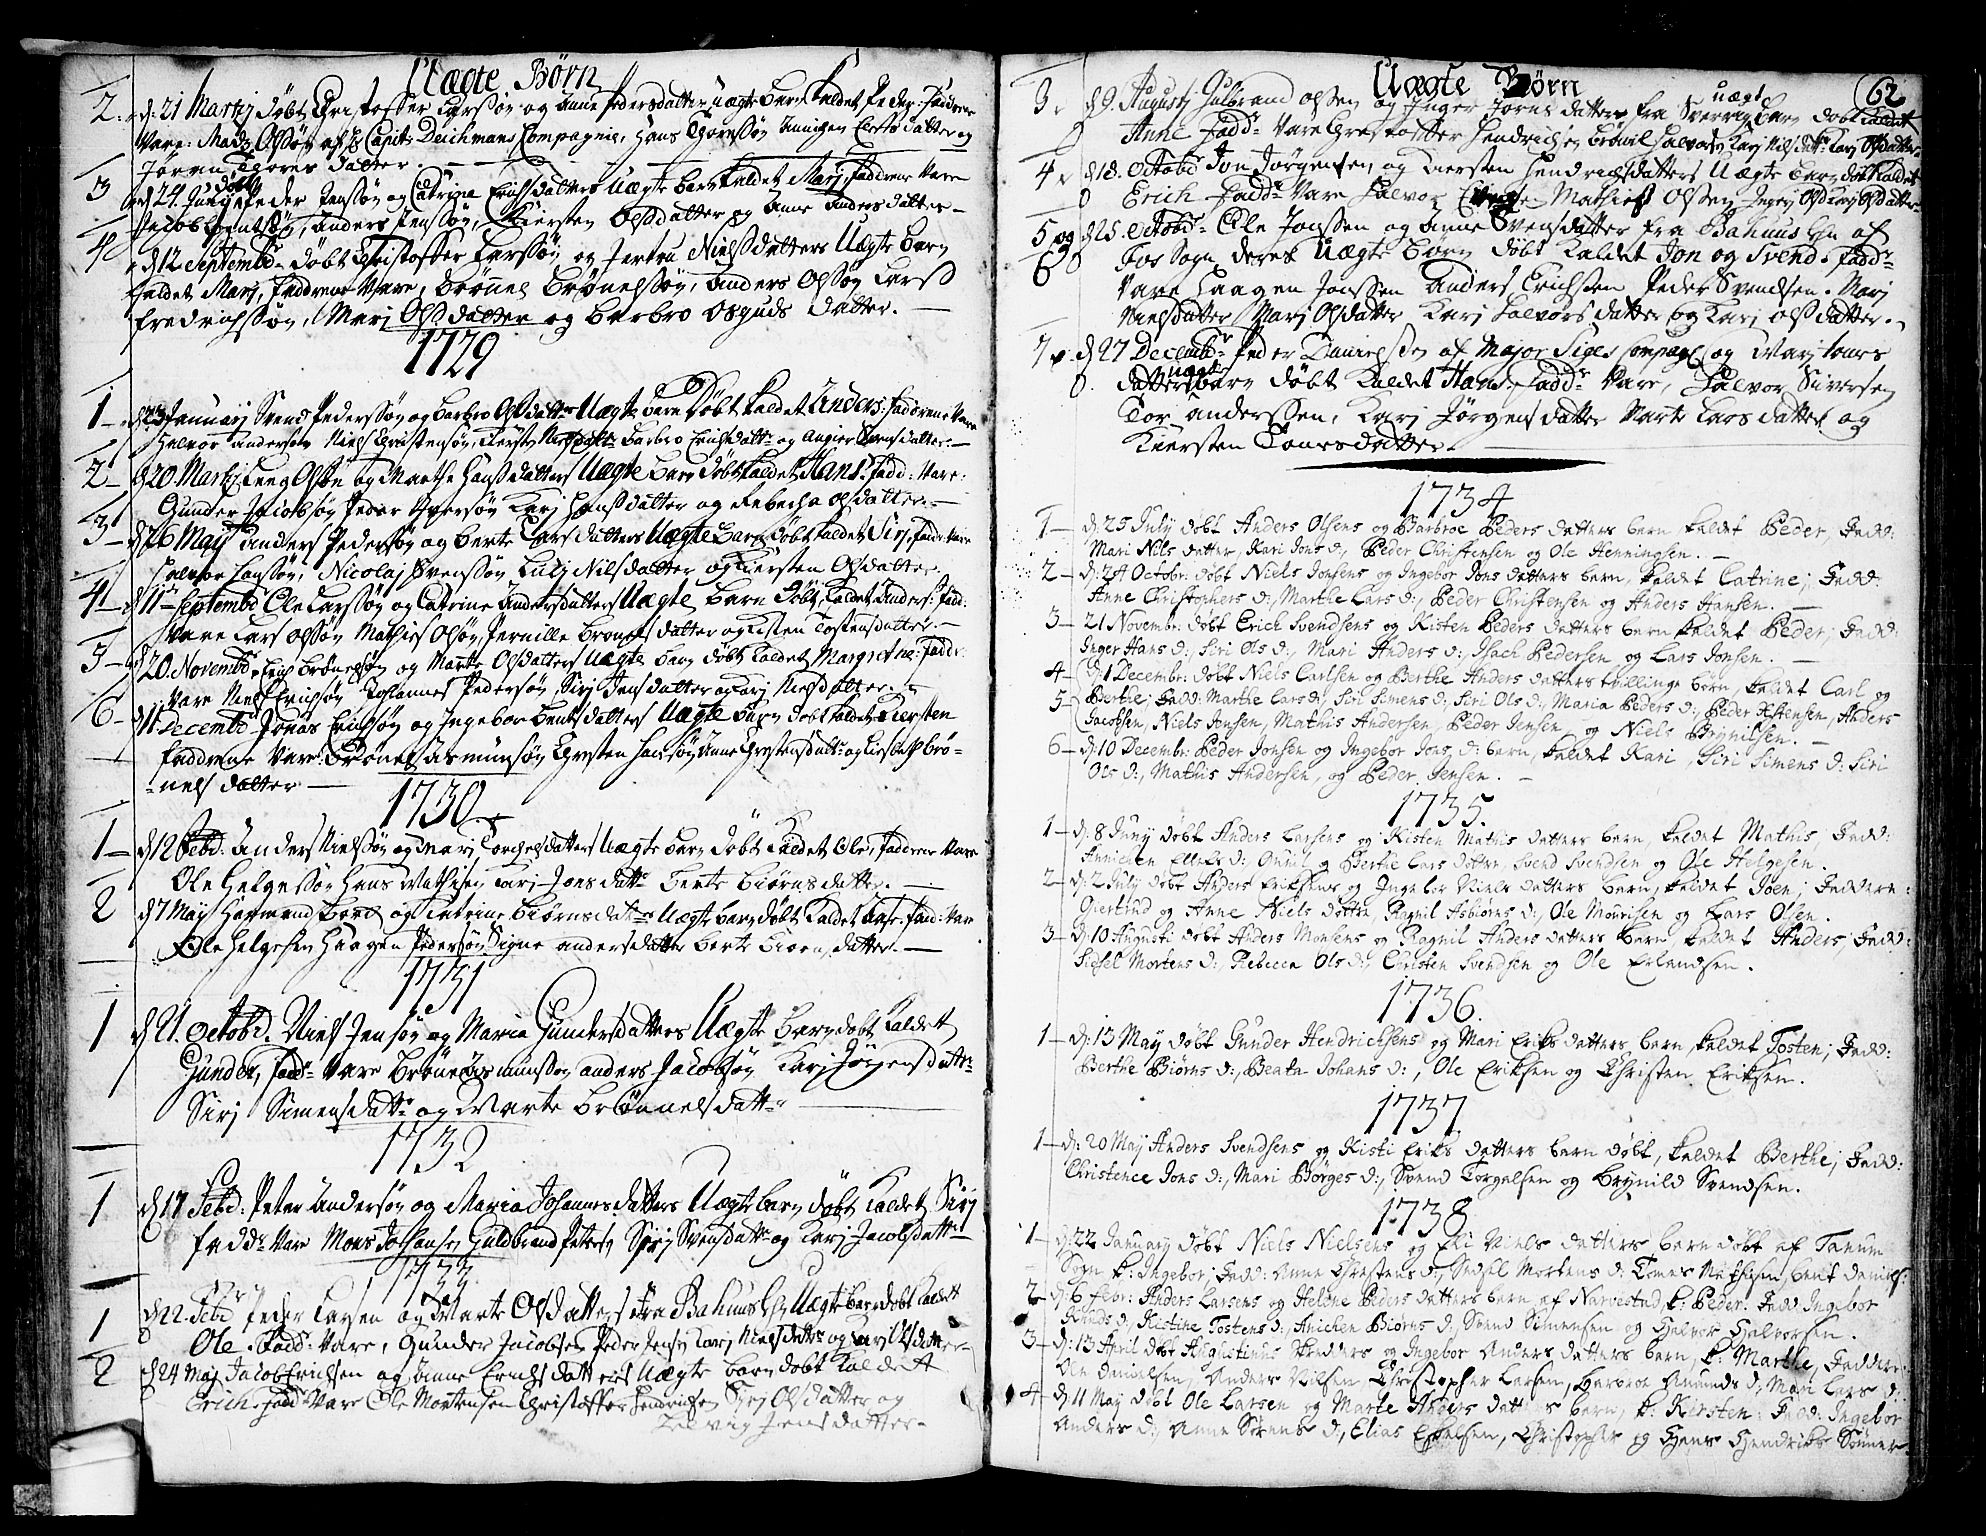 Uægte Børn
2. d. 21 Martij Døbt Christoffer Larssøn og Anne Pedersdatters uægte barn kaldet Peder: Faddrene
Vare: Mads Olssøn af Capit: Deichmans Compagnie, Hans Thoressøn
Jøren Thores datter.
3 d. 24. Peder Jenssøn og Catrina Erichsdatters Uægte barn kaldet Marj, Faddrene Vare
Anders Jenssøn, Kiersten Olsdatter og Anne Andersdatter
4 d. 12 Septembr: døbt Christoffer Larssøn og Jertru Nielsdatters Uægte barn
kaldet Marj, Faddrene Vare, Brønel Brønelssøn, Anders Olssøn Larss
Fredrichssøn, Marj Olsdatter og Barbro Osguds datter.
1729
1 Januarj Svend Pederssøn og Barbro Olsdatters Uægte barn Døbt kaldet Anders: Faddrene Vare
Halvor Anderssøn Niels Christensøn, Barbro Erichsdattr og
2 d. 20. Martij Olssøn og Marthe Hansdatters Uægte barn Døbt kaldet Hans: Fadd: Vare:
Gunder Jacobsøn Peder Iversøn Karj Hansdatter og Rebecha Olsdatter.
3 d. 26 Maij Anders Pederssøn og Berte Larsdatters Uægte Barn Døbt kaldet Sirj, Fadr: Vare
Halvor Hanssøn, Nicolaj Svenssøn Nilsdatter og Kiersten Olsdatter.
4 d. 11 Septembr Ole Larssøn og Catrine Andersdatters Uægte barn Døbt, kaldet Anders: Fadd:
Vare Lars Olssøn Mathies Olsøn Pernille Brønels datter og Kisten Tostensdatter.
5 d. 20. Novembr. Erich Brønelssøn og Marte Olsdatters Uægte barn døbt kaldet Margrethe: Faddr:
Vare Niels Erichsøn Johannes Pedersøn, Sirj Jensdatter og Karj Nielsdatter.
6 d. 11 Decembr Jonas Erichssøn og Ingebor Bentsdatters Uægte barn døbt kaldet Kiersten
Faddrene Vare: Brønel Asmunsøn Christen Hansøn Anne Christensdatt: og Lisbet Brø-
nels datter
1730
1 d. 12 Febr: Anders Nielssøn og Marj Torgelsdatters Uægte barn døbt kaldet Ole, Faddrene Vare
Ole Helgessøn Hans Mathisen Karj Jonsdattr Berte Biørns datter.
2 d. 7 Maij Harmand og Catrine Biørnsdatters Uægte Barn døbt kaldet Fadd: Vare
Ole Helgesen Haagen Pedersøn Signe Andersdatter Berte Biørn, datter.
1731
1 d. 21. Octobr. Niels Jensøn og Maria Gundersdatters Uægte Barn døbt kaldet
Gunder, Faddr Vare Brønel Asmunssøn Anders Jacobssøn Karj Jørgensdattr
Sirj Simensdattr og Marte Brønnelsdattr
1732
1 d. 17 Febr: Peter Anderssøn og Maria Johannesdatters Uægte barn døbt kaldet Sirj
Faddr Vare Mons Johansen Guldbrand Petersen Sirj Svensdattr og Karj Jacobsdattr
1733
1 d. 22. Febr Peder Larsen og Marte Olsdatters fra Bahuus Lehn Uægte barn døbt kaldet
Ole. Faddr Vare, Gunder Jacobsen Peder Jensen Karj Nielsdattr og
2 d. 24 Maj Jacob Erichsen og Anne Erichsdatters Uægte barn døbt kaldet
Erich. Faddr Vare Ole Mortensen Christoffer Hendrichsen Sirj Olsdatter og
Jensdatter.
Uægte Børn
62
3. d. 9. Augustj Gulbrand Olssen og Inger Jørnsdatters fra Sverrig uægt barn døbt kaldet
Anne Faddr Vare Christoffer Hendrichsen Halvorsen Karj Nilsdattr Karj Olsdatter
4 d. 18. Octobr Jon Jørgensen og Kiersten Hendrichsdatters Uægte barn døbt kaldet
Erich Faddr Vare Halvor Mathies Olssen Karj Olsdatter
5 og 6 d. 25. Octobr Ole Jonssen og Anne Svensdatter fra Bahuus Lehn af
Fos Sogn deres Uægte børn døbt kaldet Jon og Svend. Faddr
Vare Haagen Jonssen Anders Erichssen Peder Svendsen. Marj
Nielsdatter, Marj Olsdatter Karj Halvorsdatter og Karj Olsdatter.
7 d. 27 Decembr Peder Danielssen af Major Compagn: og Marj
datters uægte barn døbt kaldet Hans. Faddr Vare, Halvor Siversen
Tor Anderssen, Karj Jørgensdatter Marte Larsdatter og
Kiersten datter.
1734
1 — d: 25 July døbt Anders Olsens og Barbroe Peders datters barn kaldet Peder, Fadd:
Mari Nils datter, Kari Jons d:, Peder Christensen og Ole Henningsen.
2 — d: 24 Octobr: døbt Niels Jonsens og Ingebor Jons datters barn, kaldet Catrine; Fadd:
Anne Christophers d:, Marthe Lars d:, Peder Christensen og Anders Hansen.
3 — 21 Novembr: døbt Erich Svendsens og Kisten Peders datters barn kaldet Peder; Fadd:
Inger Hans d:, Siri Ols d:, Mari Anders d:, Isach Pedersen og Lars Jonsen.
4 — d: 1 Decembr: døbt Niels Carlsen og Berthe Anders datters tvillinge børn, kaldet Carl og
5 Berthe; Fadd: Marthe Lars d: Siri Simens d:, Siri Ols d:, Maria Peders d:, Peder Estensen, Anders
Jacobsen, Niels Jonsen, Mathis Andersen, Peder Jensen og Niels Brynilsen.
6 — d: 10 Decembr: Peder Jonsen og Ingebor Jons d: barn, kaldet Kari, Siri Simens d: Siri
Ols d:, Mathis Andersen, og Peder Jensen.
1735.
1 — d: 8 Junij døbt Anders Larsens og Kisten Mathis datters barn, kaldet Mathis, Fadd:
Annichen Ellefs d: og Berthe Lars datter, Svend Svendsen og Ole Helgesen.
2 — d: 2 July døbt Anders Eriksens og Ingebor Niels datters barn, kaldet Joen; Faddere:
Giertrud og Anne Niels døttre, Ragnil Asbiørns d:, Ole Mouritsen og Lars Olsen.
3 — d: 10 Augusti døbt Anders Monsens og Ragnil Anders datters barn, kaldet Anders; Fadd:
Sidsel Mortens d:, Rebecca Ols d:, Christen Svendsen og Ole Erlandsen.
1736.
1 — d: 13 May døbt Gunder Hendrichsens og Mari Eriks datters barn, kaldet Tosten; Fadd:
Berthe Biørns d:, Beata Johans d:, Ole Eriksen og Christen Eriksen.
1737.
1 — d: 20 May Anders Svendsens og Kisti Eriks datters barn døbt, kaldet Berthe; Fadd:
Christence Jons d:, Mari Børges d:, Svend Torgelsen og Brynild Svendsen.
1738
1 — d: 22 January døbt Niels Nielsens og Eli Niels datters barn døbt af Tanum
Sogn, k: Ingebor; Fadd: Anne Christens d:, Sedsel Mortens d: Tomes Bent Daniels:
2 — d: 6 Febr: Anders Larsens og Helene Peders datters barn af Narvestad, k: Peder. Fadd Ingebor
Knuds d: Kistine Tostens d:, Anichen Biørns d:, Svend Simensen og Halvor Halvorsen.
3 — d: 13 April døbt Augustinus og Ingebor Anders datters barn, k: Marthe, Faddere:
Ole Danielsen, Anders Nilsen, Christopher Larsen, Barbroe Amunds d:, Mari Lars d:
4 d. 11 May døbt Ole Larsen og Marte datters barn, k: Kirsten: Fadd: Ingebor
Anders d:, Anne Sørens d:, Elias Eskelsen, Christopher og Hans Hendriks Sønner.